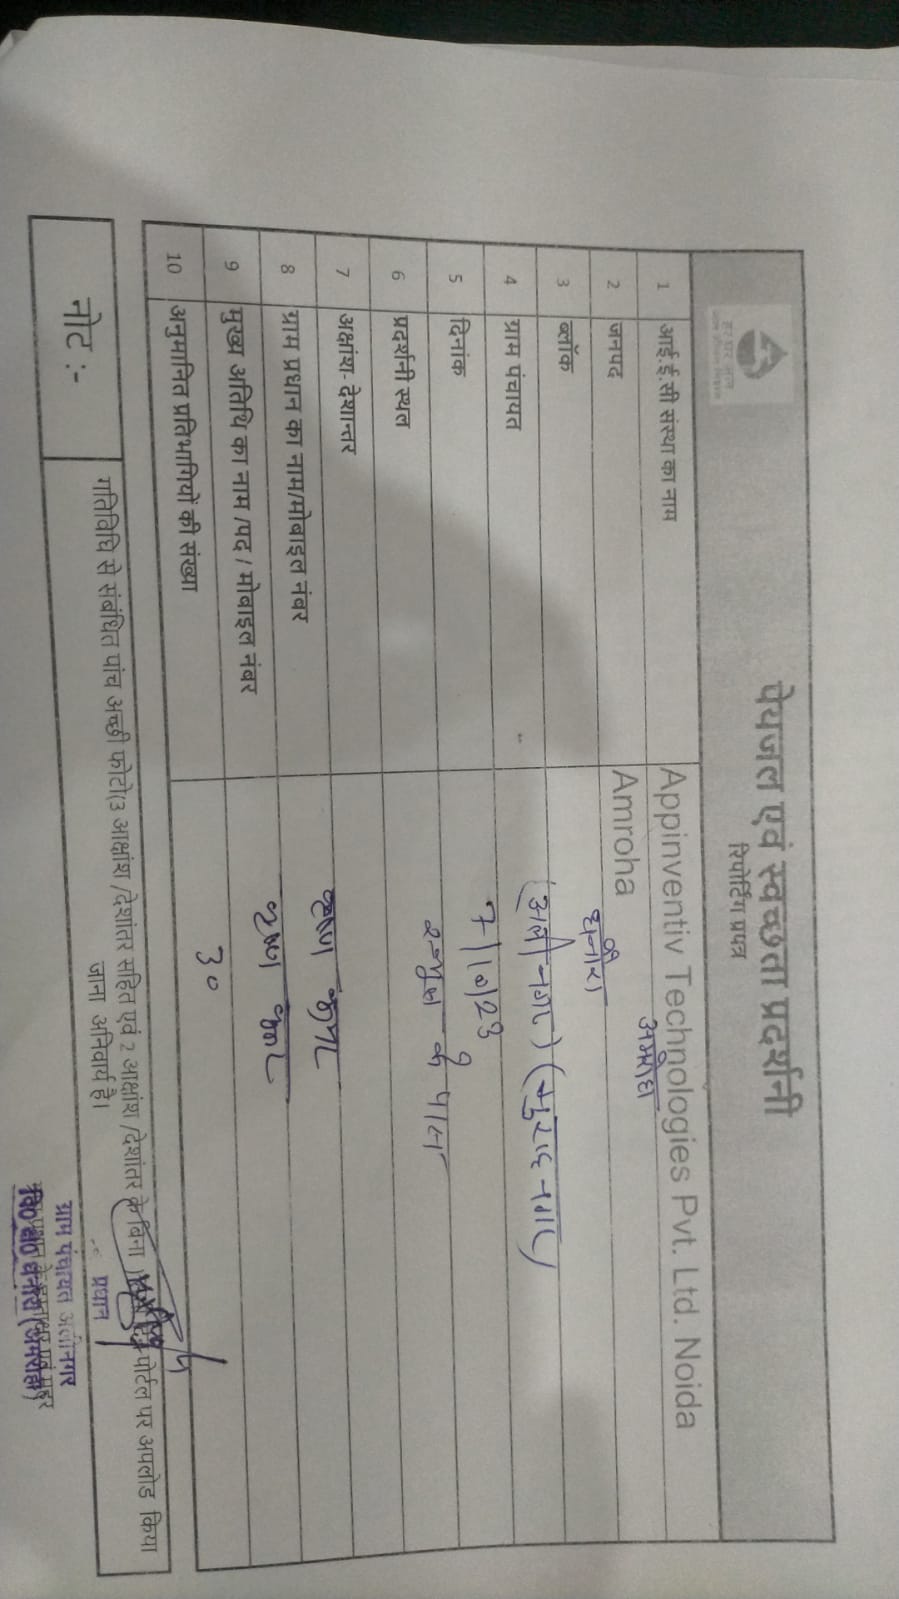 हर घर जल
पेयजल एवं स्वच्छता प्रदर्शनी
रिपोर्टिंग प्रपत्र
1 आई.ई.सी संस्था का नाम Appinventiv Technologies Pvt. Ltd. Noida
2 जनपद Amroha अमरोहा
3 ब्लॉक धनौरा
4 ग्राम पंचायत (अलीनगर)
5 दिनांक 7/1/23
6 प्रदर्शनी स्थल के पास
7 अक्षांश देशान्तर
8 ग्राम प्रधान का नाम/मोबाइल नंबर
9 मुख्य अतिथि का नाम /पद / मोबाइल नंबर
10 अनुमानित प्रतिभागियों की संख्या 30
नोट :- गतिविधि से संबंधित पांच अच्छी फोटो(3 आक्षांश /देशांतर सहित एवं 2 आक्षांश /देशांतर के बिना) पोर्टल पर अपलोड किया
जाना अनिवार्य है।
प्रधान
ग्राम पंचायत अलीनगर
वि0 ख0 धनौरा (अमरोहा)